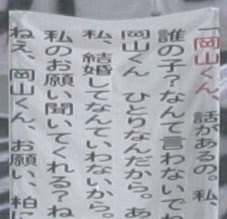 「岡山くん、話があるの。私、
誰の子？なんて言わないでね
岡山くん ひとりなんだから。あ
私、結婚してなんていわないから。
私のお願い聞いてくれる？ね
ねえ、岡山くん、お願い、柏に